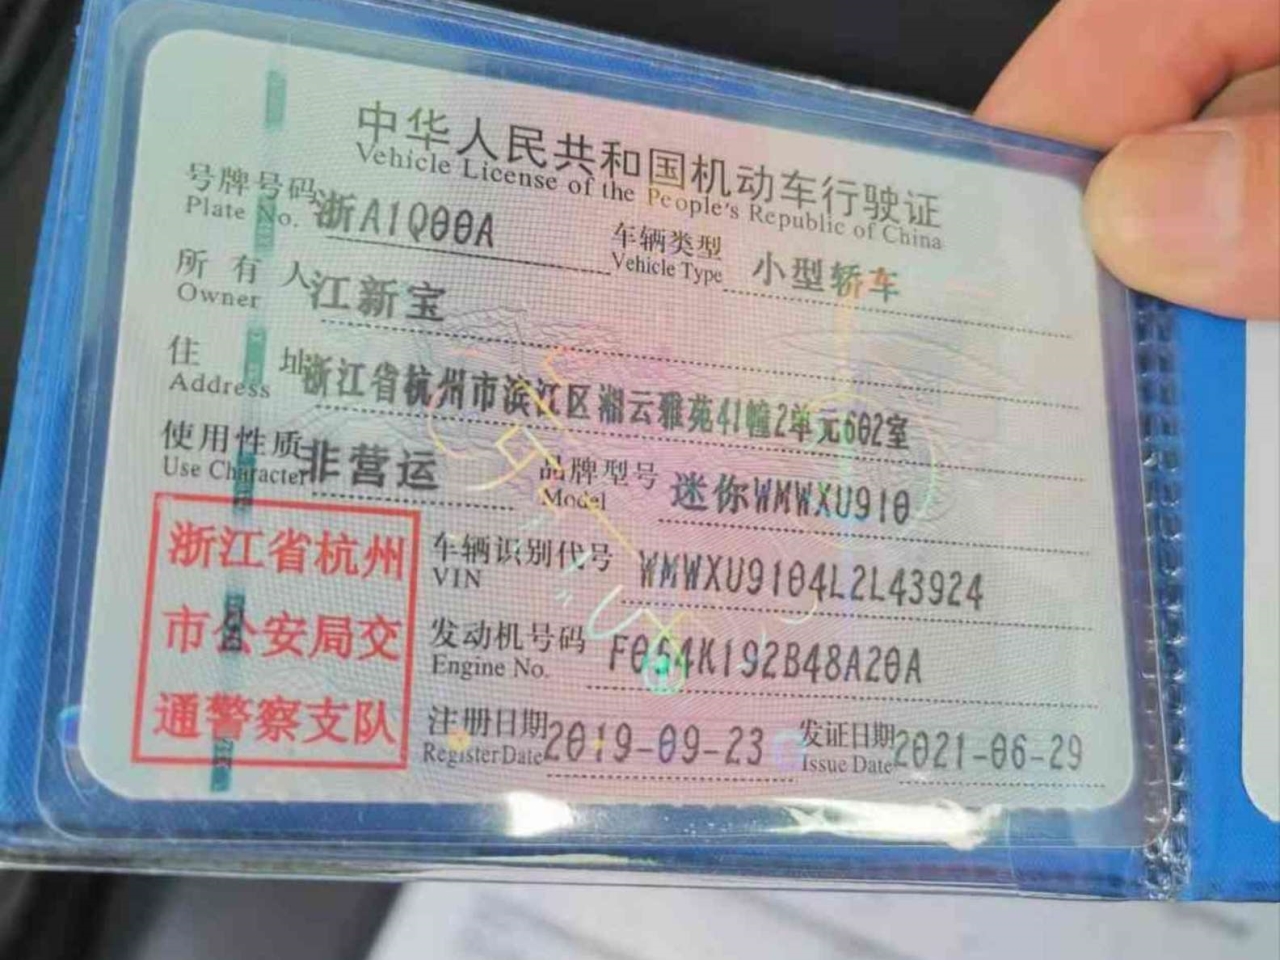 中华人民共和国机动车行驶证
Vehicle License of the People's Republic of China
号牌号码 浙A1Q00A 车辆类型 小型轿车
Plate No. Vehicle Type
所有人 江新宝
Owner
住址 浙江省杭州市滨江区湘云雅苑41幢2单元602室
Address
使用性质 非营运 品牌型号 迷你WMWXU910
Use Character Model
浙江省杭州
市公安局交
通警察支队
车辆识别代号 WMWXU9104L2L43924
VIN
发动机号码 F054K192B48A20A
Engine No.
注册日期 2019-09-23 发证日期 2021-06-29
Register Date Issue Date